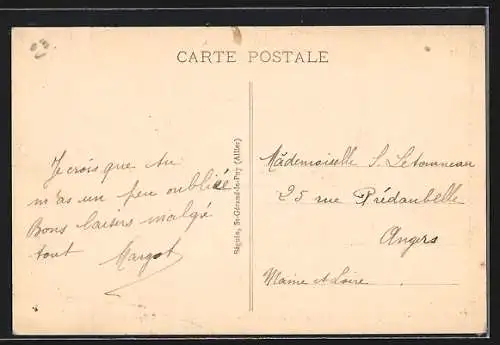 CARTE POSTALE
Je crois que tu
m'as un peu oubliée
Bons baisers malgré
tout Margot
Séguin, St-Gérand-le-Puy (Allier)
Mademoiselle S. Letourneau
25 rue Prédaubelle
Angers
Maine et Loire